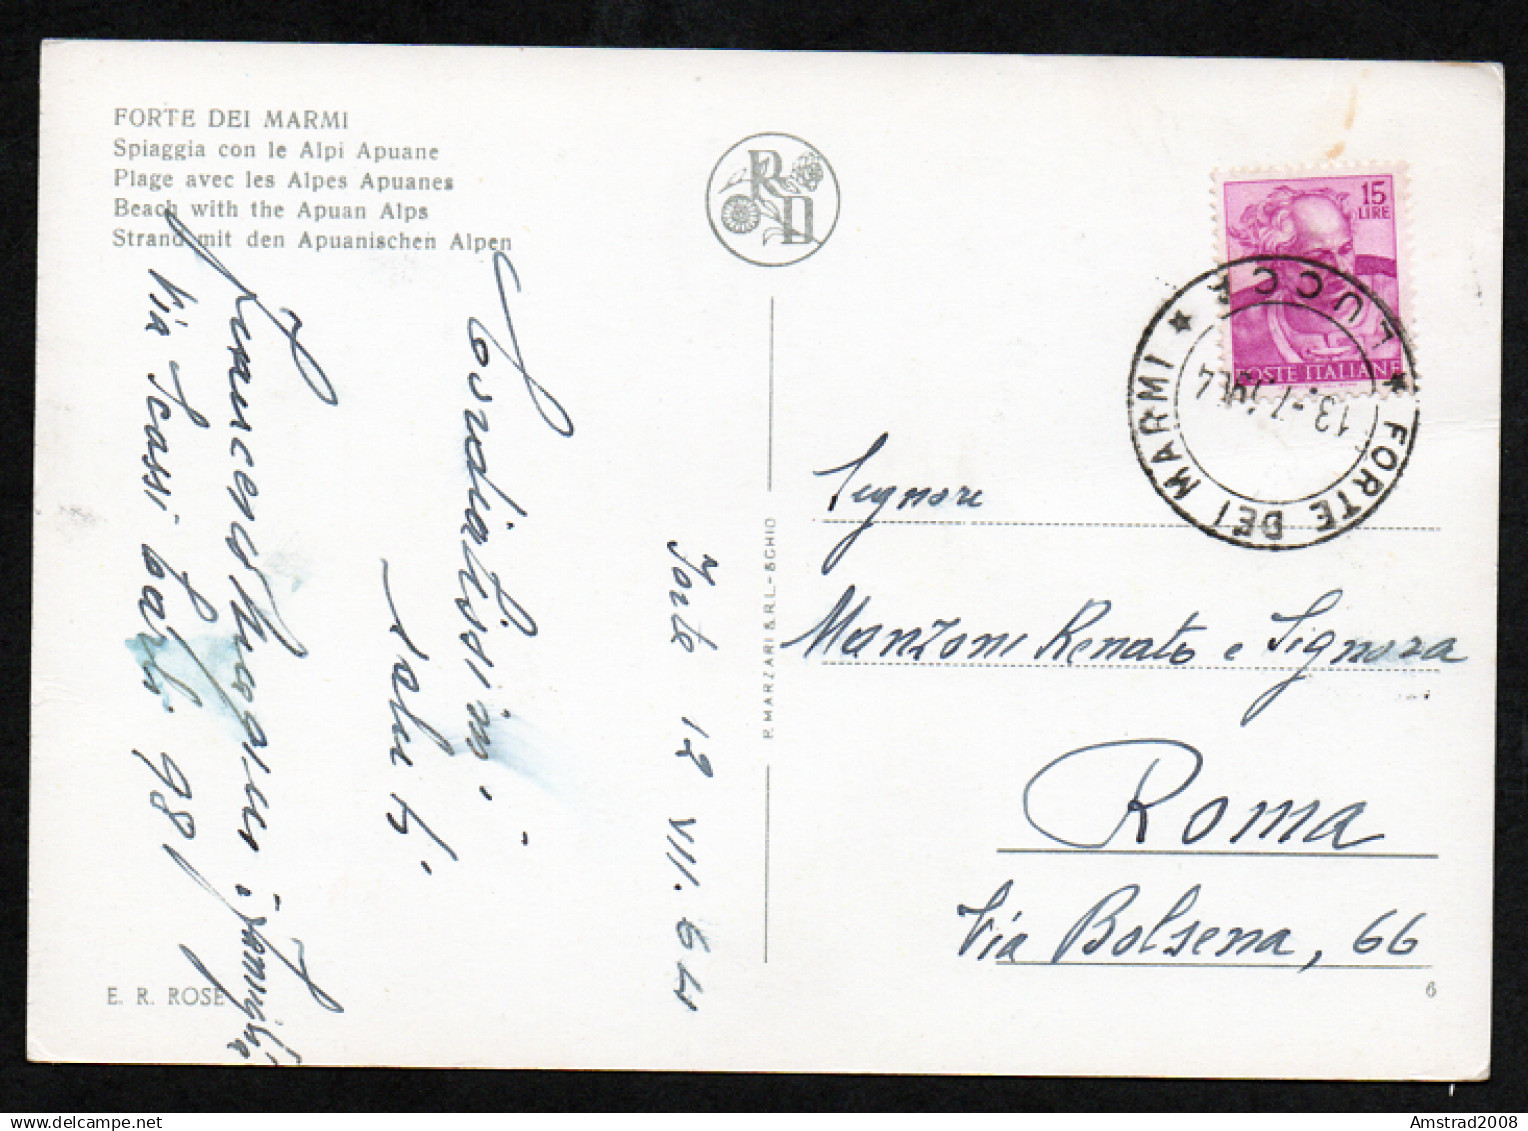 FORTE DEI MARMI
Spiaggia con le Alpi Apuane
Plage avec les Alpes Apuanes
Beach with the Apuan Alps
Strand mit den Apuanischen Alpen
RD
15
LIRE
POSTE ITALIANE
LUCCA
★ FORTE DEI MARMI ★
13.-7.1964
Forte 12 VII. 64
Cordialissimi
saluti
e famiglia
Via Scassi 98
Signore
Manzoni Renato e Signora
Roma
Via Bolsena, 66
P. MARZARI S.R.L. - SCHIO
E. R. ROSE
6
Amstrad2008
delcampe.net